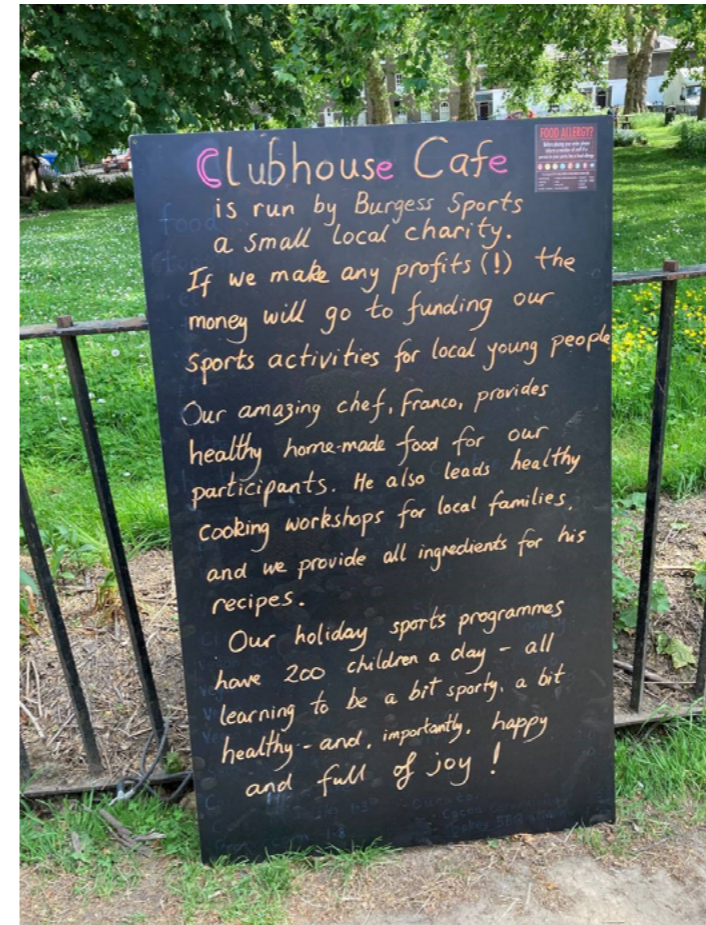 Clubhouse Cafe
FOOD ALLERGY?
is run by Burgess Sports
a small local charity.
If we make any profits (!) the
money will go to funding our
Sports activities for local young people
Our amazing chef, Franco, provides
healthy home-made food for our
participants. He also leads healthy
cooking workshops for local families,
and we provide all ingredients for his
recipes.
Our holiday sports programmes
have 200 children a day - all
learning to be a bit sporty, a bit
healthy - and, importantly, happy
and full of joy!